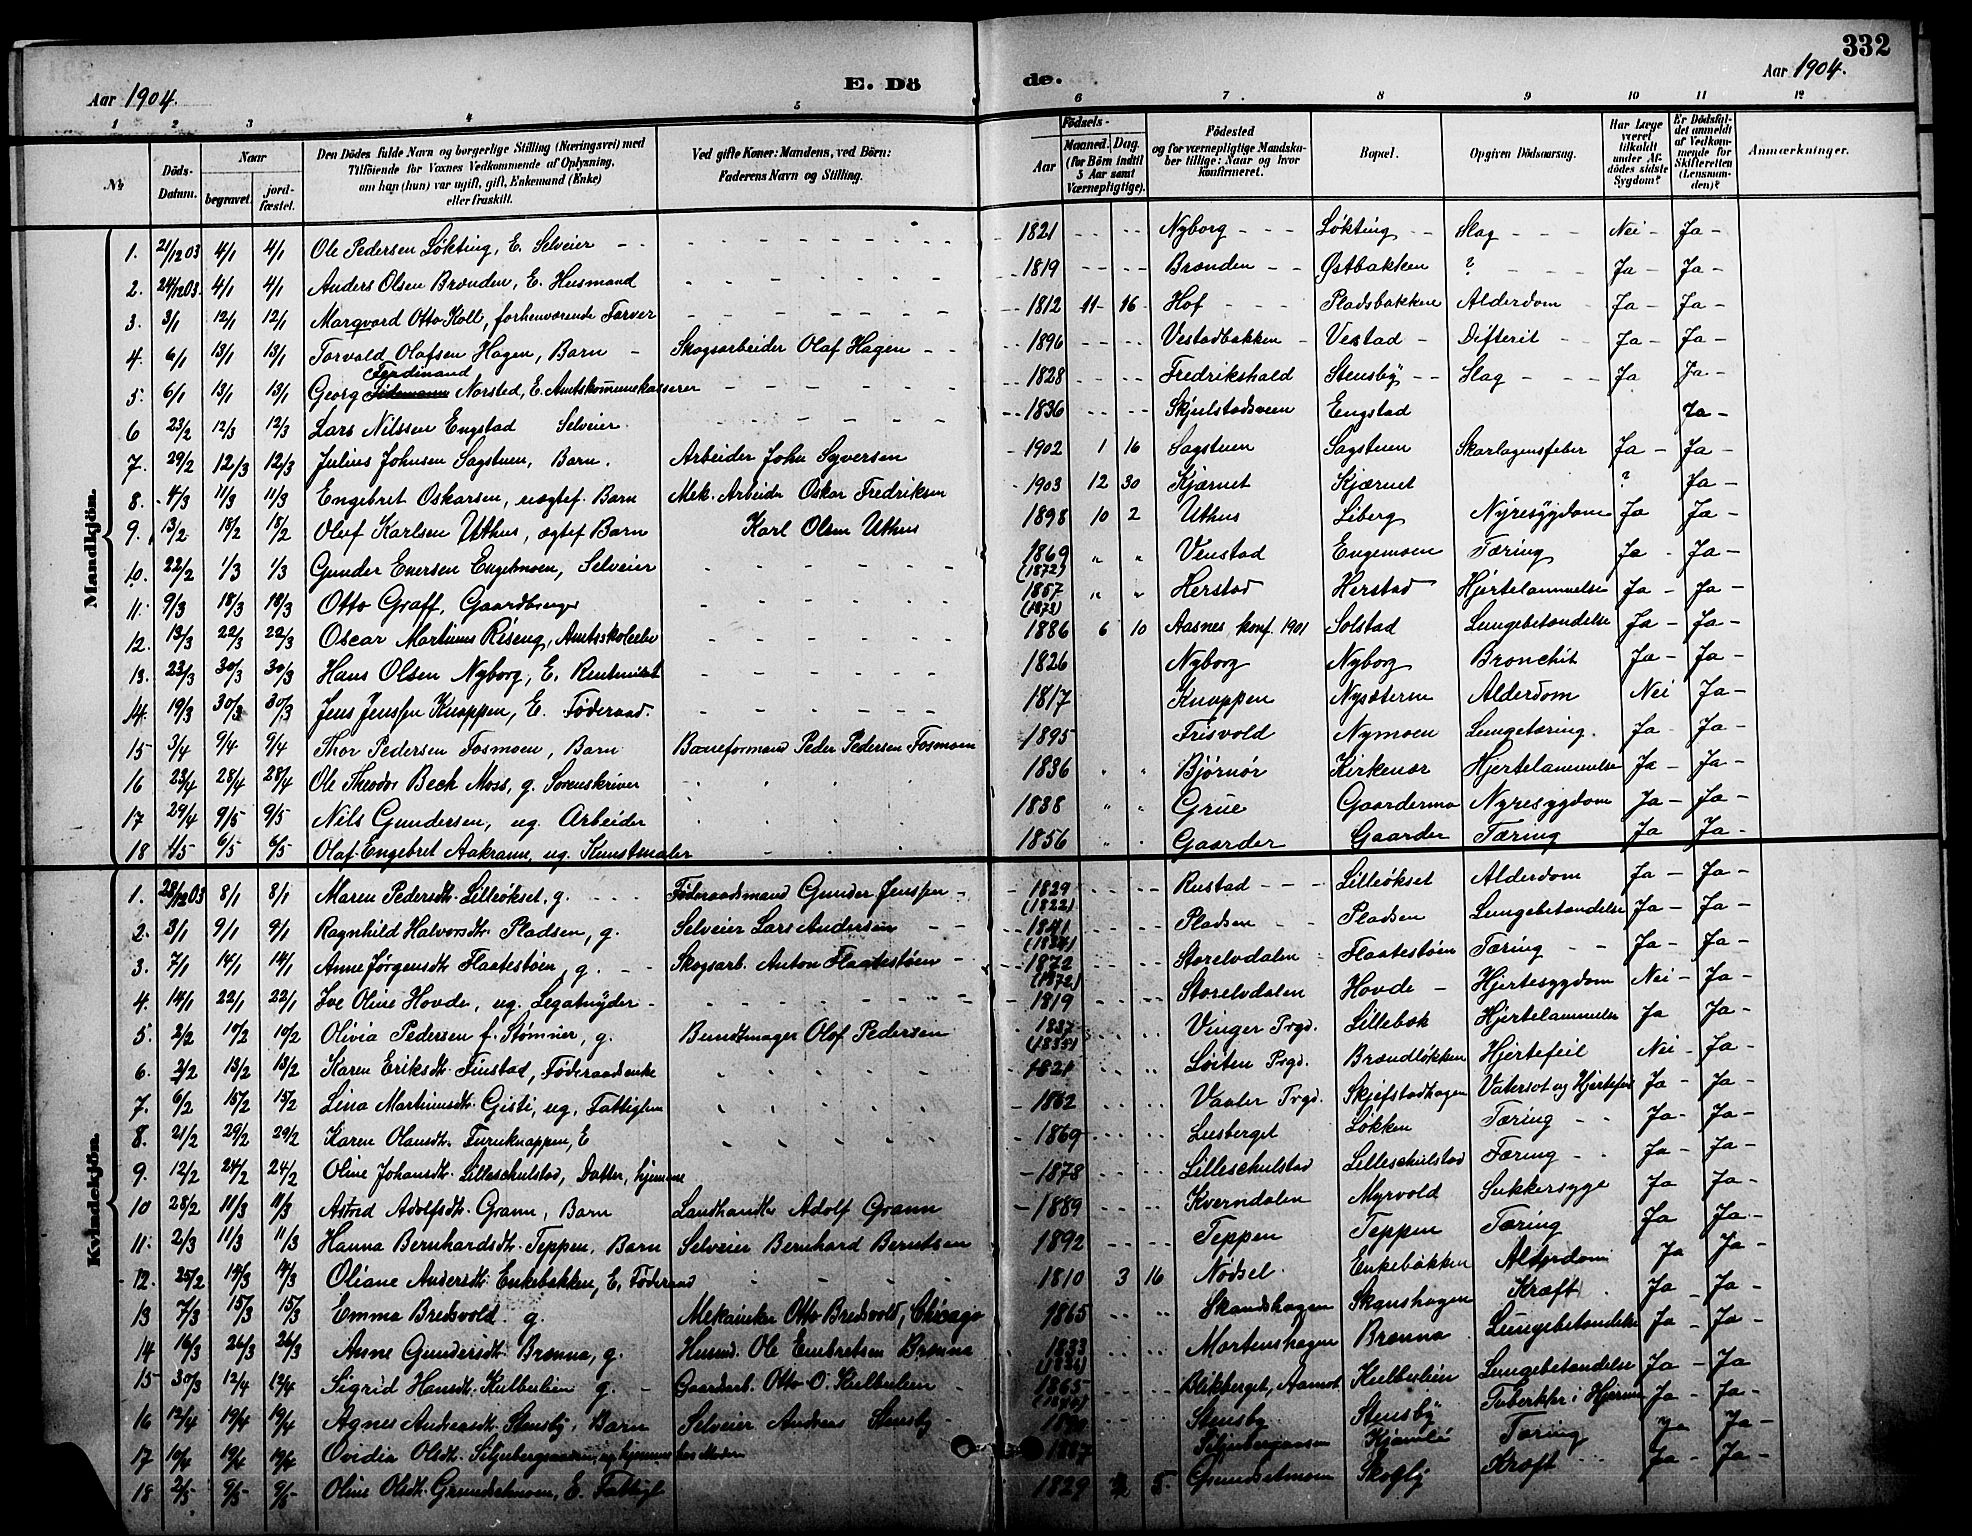 332
Aar 1904. E. Dö de. Aar 1904.
1 2 3 4 5 6 7 8 9 10 11 12
No Döds-Datum. Naar begravet. jordfæstet. Den Dödes fulde Navn og borgerlige Stilling (Næringsvei) med Tilföiende for Voxnes Vedkommende af Oplysning, om han (hun) var ugift, gift, Enkemand (Enke) eller fraskilt. Ved gifte Koner: Mandens, ved Börn: Faderens Navn og Stilling. Födsels- Aar Maaned. Dag. (for Börn indtil 5 Aar samt Værnepligtige). Födested og for værnepligtige Mandskaber tillige: Naar og hvor konfirmeret. Bopæl. Opgiven Dödsaarsag. Har Læge været tilkaldt under Afdödes sidste Sygdom? Er Dödsfaldet anmeldt af Vedkommende for Skifteretten (Lensmanden)? Anmærkninger.
Mandkjön.
1. 21/12 03 4/1 4/1 Ole Pedersen Løkting, E. Selveier 1821 Nyborg Løkting Slag Nei Ja
2. 24/12 03. 4/1 4/1 Anders Olsen Brænden, E. Husmand 1819 Brænden Østbakken ? Ja Ja
3. 3/1 12/1 12/1 Marqvard Otto Koll, forhenværende Farver 1812 11 16 Hof Pladsbakken Alderdom Ja Ja
4. 6/1 13/1 13/1 Torvald Olafsen Hagen, Barn Skogsarbeider Olaf Hagen 1896 Vestadbakken Vestad Difterit Ja Ja
Ferdinand
5. 6/1 13/1 13/1 Georg Norsted, E. Amtskommunekasserer 1828 Fredrikshald Stensby Slag Ja Ja
6 23/2 12/3 12/3 Lars Nilssen Engstad Selveier 1836 Skjulstadsveen Engstad Ja
7. 29/2 12/3 12/3 Julius Johnsen Sagstuen, Barn. Arbeider John Syversen 1902 1 16 Sagstuen Sagstuen Skarlagensfeber Ja Ja
8. 4/3 11/3 11/3 Engebret Oskarsen, uægtef. Barn Mek. Arbeider Oskar Fredriksen 1903 12 30 Kjærnet Kjærnet ? Ja
9. 13/2 18/2 18/2 Olaf Karlsen Uthus, ægtef Barn Karl Olsen Uthus 1898 10 2 Uthus Liberg Nyresygdom Ja Ja
10. 22/2 1/3 1/3 Gunder Enersen Engelmoen, Selveier 1869 (1872) Venstad Engemoen Tæring Ja Ja
11. 9/3 18/3 18/3 Otto Graff, Gaardbruger 1857 (1873) Herstad Herstad Hjertelammelse Ja Ja
12. 13/3 22/3 22/3 Oscar Martinus Riseng, Amtsskoleelev 1886 6 10 Aasnes konf. 1901 Solstad Lungebetændelse Ja Ja
13. 23/3 30/3 30/3 Hans Olsen Nyborg, E. Rentenist 1826 Nyborg Nyborg Bronchit Ja Ja
14. 19/3 30/3 30/3 Jens Jenssen Knappen, E. Føderaad. 1817 Knappen Nysæteren Alderdom Nei Ja
15 3/4 9/4 9/4 Thor Pedersen Fosmoen, Barn Baneformand Peder Pedersen Fosmoen 1895 Frisvold Nymoen Lungetæring. Ja Ja
16 23/4 28/4 28/4 Ole Theodor Bech Moss, g. Sorenskriver 1836 Bjørnør Kirkenær Hjertelammelse Ja Ja
17 29/4 9/5 9/5 Nils Gundersen, ug. Arbeider 1838 Grue Gaardermo Nyresygdom Ja Ja
18 4/5 6/5 6/5 Olaf Engebret Aakrann, ug. Kunstmaler 1856 Gaarder Gaarder Tæring Ja Ja
Kvindekjön.
1. 28/12 03 8/1 8/1 Maren Pedersdt. Lilleøkset, g. Føderaadsmand Gunder Jenssen 1829 (1822) Rustad Lilleøkset Alderdom Ja Ja
2. 3/1 9/1 9/1 Ragnhild Halvorsdt. Pladsen, g. Selveier Lars Andersen 1841 (1834) Pladsen Pladsen Lungebetændelse Ja Ja
3. 7/1 14/1 14/1 Anne Jørgensdt. Flaatestøen, g. Skogsarb. Anton Flaatestøen 1872 (1872) Storelvdalen Flaatestøen Tæring Ja Ja
4. 14/1 22/1 22/1 Ive Oline Hovde, ug. Legatnyder 1819 Storelvdalen Hovde Hjertesygdom Nei Ja
5. 2/2 10/2 10/2 Olivia Pedersen f. Stømner, g. Bundtmager Olof Pedersen 1837 (1835) Vinger Prgd. Lillebæk Hjertelammelse Ja Ja
6. 3/2 13/2 13/2 Karen Eriksdt. Finstad, Føderaadsenke 1821 Løiten Prgd. Brændløkken Hjertefeil Nei Ja
7. 6/2 15/2 15/2 Lina Martinusdt. Gisti, ug. Fattiglem 1862 Vaaler Prgd. Skjefstadhagen Vatersot og Hjertefeil Ja Ja
8. 21/2 29/2 29/2 Karen Olausdt. Furuknappen, E 1869 Lusberget Løkken Tæring Ja Ja
9. 12/2 24/2 24/2 Oline Johansdt. Lilleschulstad, Datter, hjemme 1878 Lilleschulstad Lilleschulstad Tæring Ja Ja
10 28/2 11/3 11/3 Astrid Adolfsdt. Grann, Barn Landhandler Adolf Grann 1889 Kverndalen Myrvold Sukkersyge Ja Ja
11. 2/3 11/3 11/3 Hanna Bernhardsdt. Teppen, Barn Selveier Bernhard Berntsen 1892 Teppen Teppen Tæring Ja Ja
12. 25/2 14/3 14/3 Oliane Andersdt. Enkebakken, E. Føderaad 1810 3 16 Nødsel Enkebakken Alderdom Ja Ja
13 7/3 15/3 15/3 Emma Bredsvold g. Mekaniker Otto Bredsvold, Chicago 1865 Skandshagen Skanshagen Kræft Ja Ja
14 16/3 26/3 26/3 Anne Gundersdt. Brønna, g. Husmd. Ole Embretsen Brønna 1833 Mortenshagen Brønna Lungebetændelse Ja Ja
15 30/3 12/4 12/4 Sigrid Hansdt. Kulbulien g. Gaardarb. Otto O. Kulbulien 1865 Blikberget, Aamot Kulbulien Lungebetændelse Ja Ja
16 12/4 19/4 19/4 Agnes Andreasdt. Stensby, Barn Selveier Andreas Stensby Stensby Stensby Tuberkler i Hjernen Ja Ja
17 10/4 19/4 19/4 Ovidia Olsdt. hjemme hos Moder 1887 Tæring Ja Ja
18 2/5 9/5 9/5 Oline Olsdt. Grundsetmoen, E. Fattigl 1829 5 Grundsetmoen Skogly Kræft Ja Ja